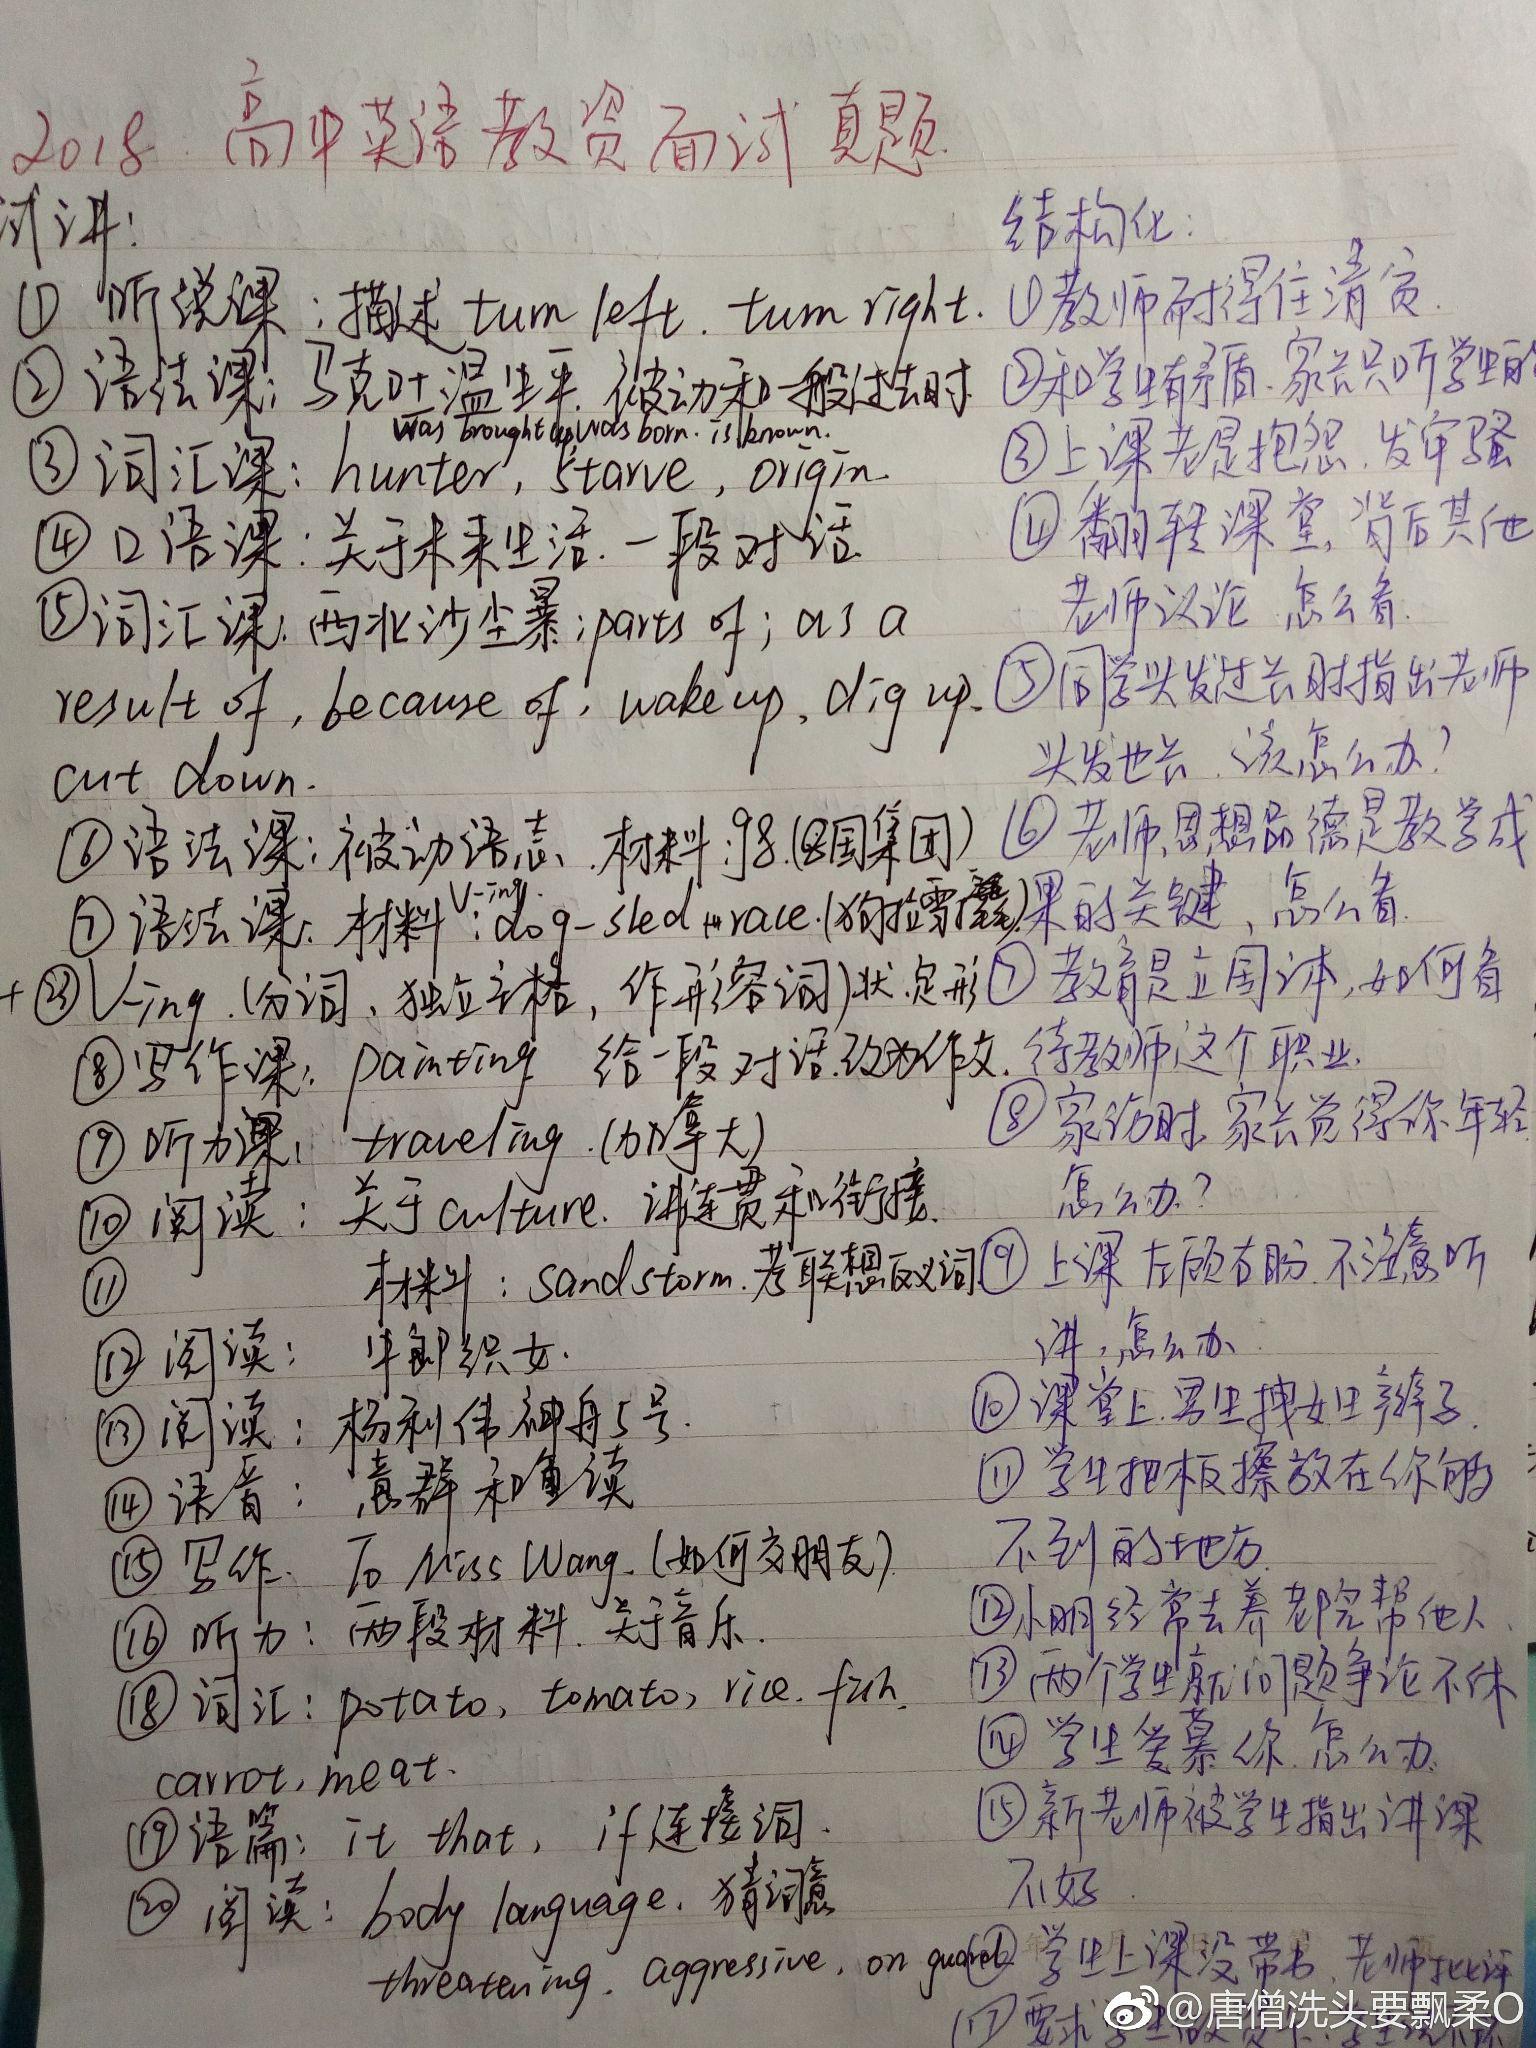 2018 高中英语教资面试真题
试讲:
① 听说课:描述 turn left. turn right.
② 语法课:马克吐温生平. 被动和一般过去时
was brought up was born. is known.
③ 词汇课: hunter, starve, origin.
④ 口语课:关于未来生活.一段对话
⑤ 词汇课:西北沙尘暴;parts of; as a
result of, because of, wake up, dig up.
cut down.
⑥ 语法课:被动语态.材料:g8.(8国集团)
⑦ 语法课: 材料:dog-sled race.(狗拉雪橇)
V-ing.
+㉓ V-ing (分词、独立主格,作形容词)状.定形
⑧ 写作课: painting 给一段对话.改为作文.
⑨ 听力课: traveling.(加拿大)
⑩ 阅读: 关于culture. 讲连贯和衔接.
⑪ 材料:sandstorm.考联想反义词
⑫ 阅读: 牛郎织女.
⑬ 阅读:杨利伟神舟5号.
⑭ 语音: 意群和重读
⑮ 写作. To Miss Wang.(如何交朋友)
⑯ 听力: 两段材料.关于音乐.
⑱ 词汇: potato, tomato, rice. fish.
carrot, meat.
⑲ 语篇: it that, if 连接词.
⑳ 阅读: body language. 猜词意
threatening. aggressive. on guard
结构化:
①教师耐得住清贫.
②和学生有矛盾.家长只听学生的
③上课老是抱怨.发牢骚
④翻转课堂,背后其他
老师议论.怎么看.
⑤同学头发过长时指出老师
头发也长.该怎么办?
⑥老师思想品德是教学成
果的关键、怎么看.
⑦教育是立国之本,如何看
待教师这个职业.
⑧家访时.家长觉得你年轻
怎么办?
⑨上课左顾右盼.不注意听
讲,怎么办.
⑩课堂上.男生拽女生辫子.
⑪学生把板擦放在你够
不到的地方.
⑫小明经常去养老院帮他人.
⑬两个学生就问题争论不休
⑭学生爱慕你.怎么办.
⑮新老师被学生指出讲课
不好.
⑯学生上课没带书.老师批评
⑰要求学生
@唐僧洗头要飘柔O